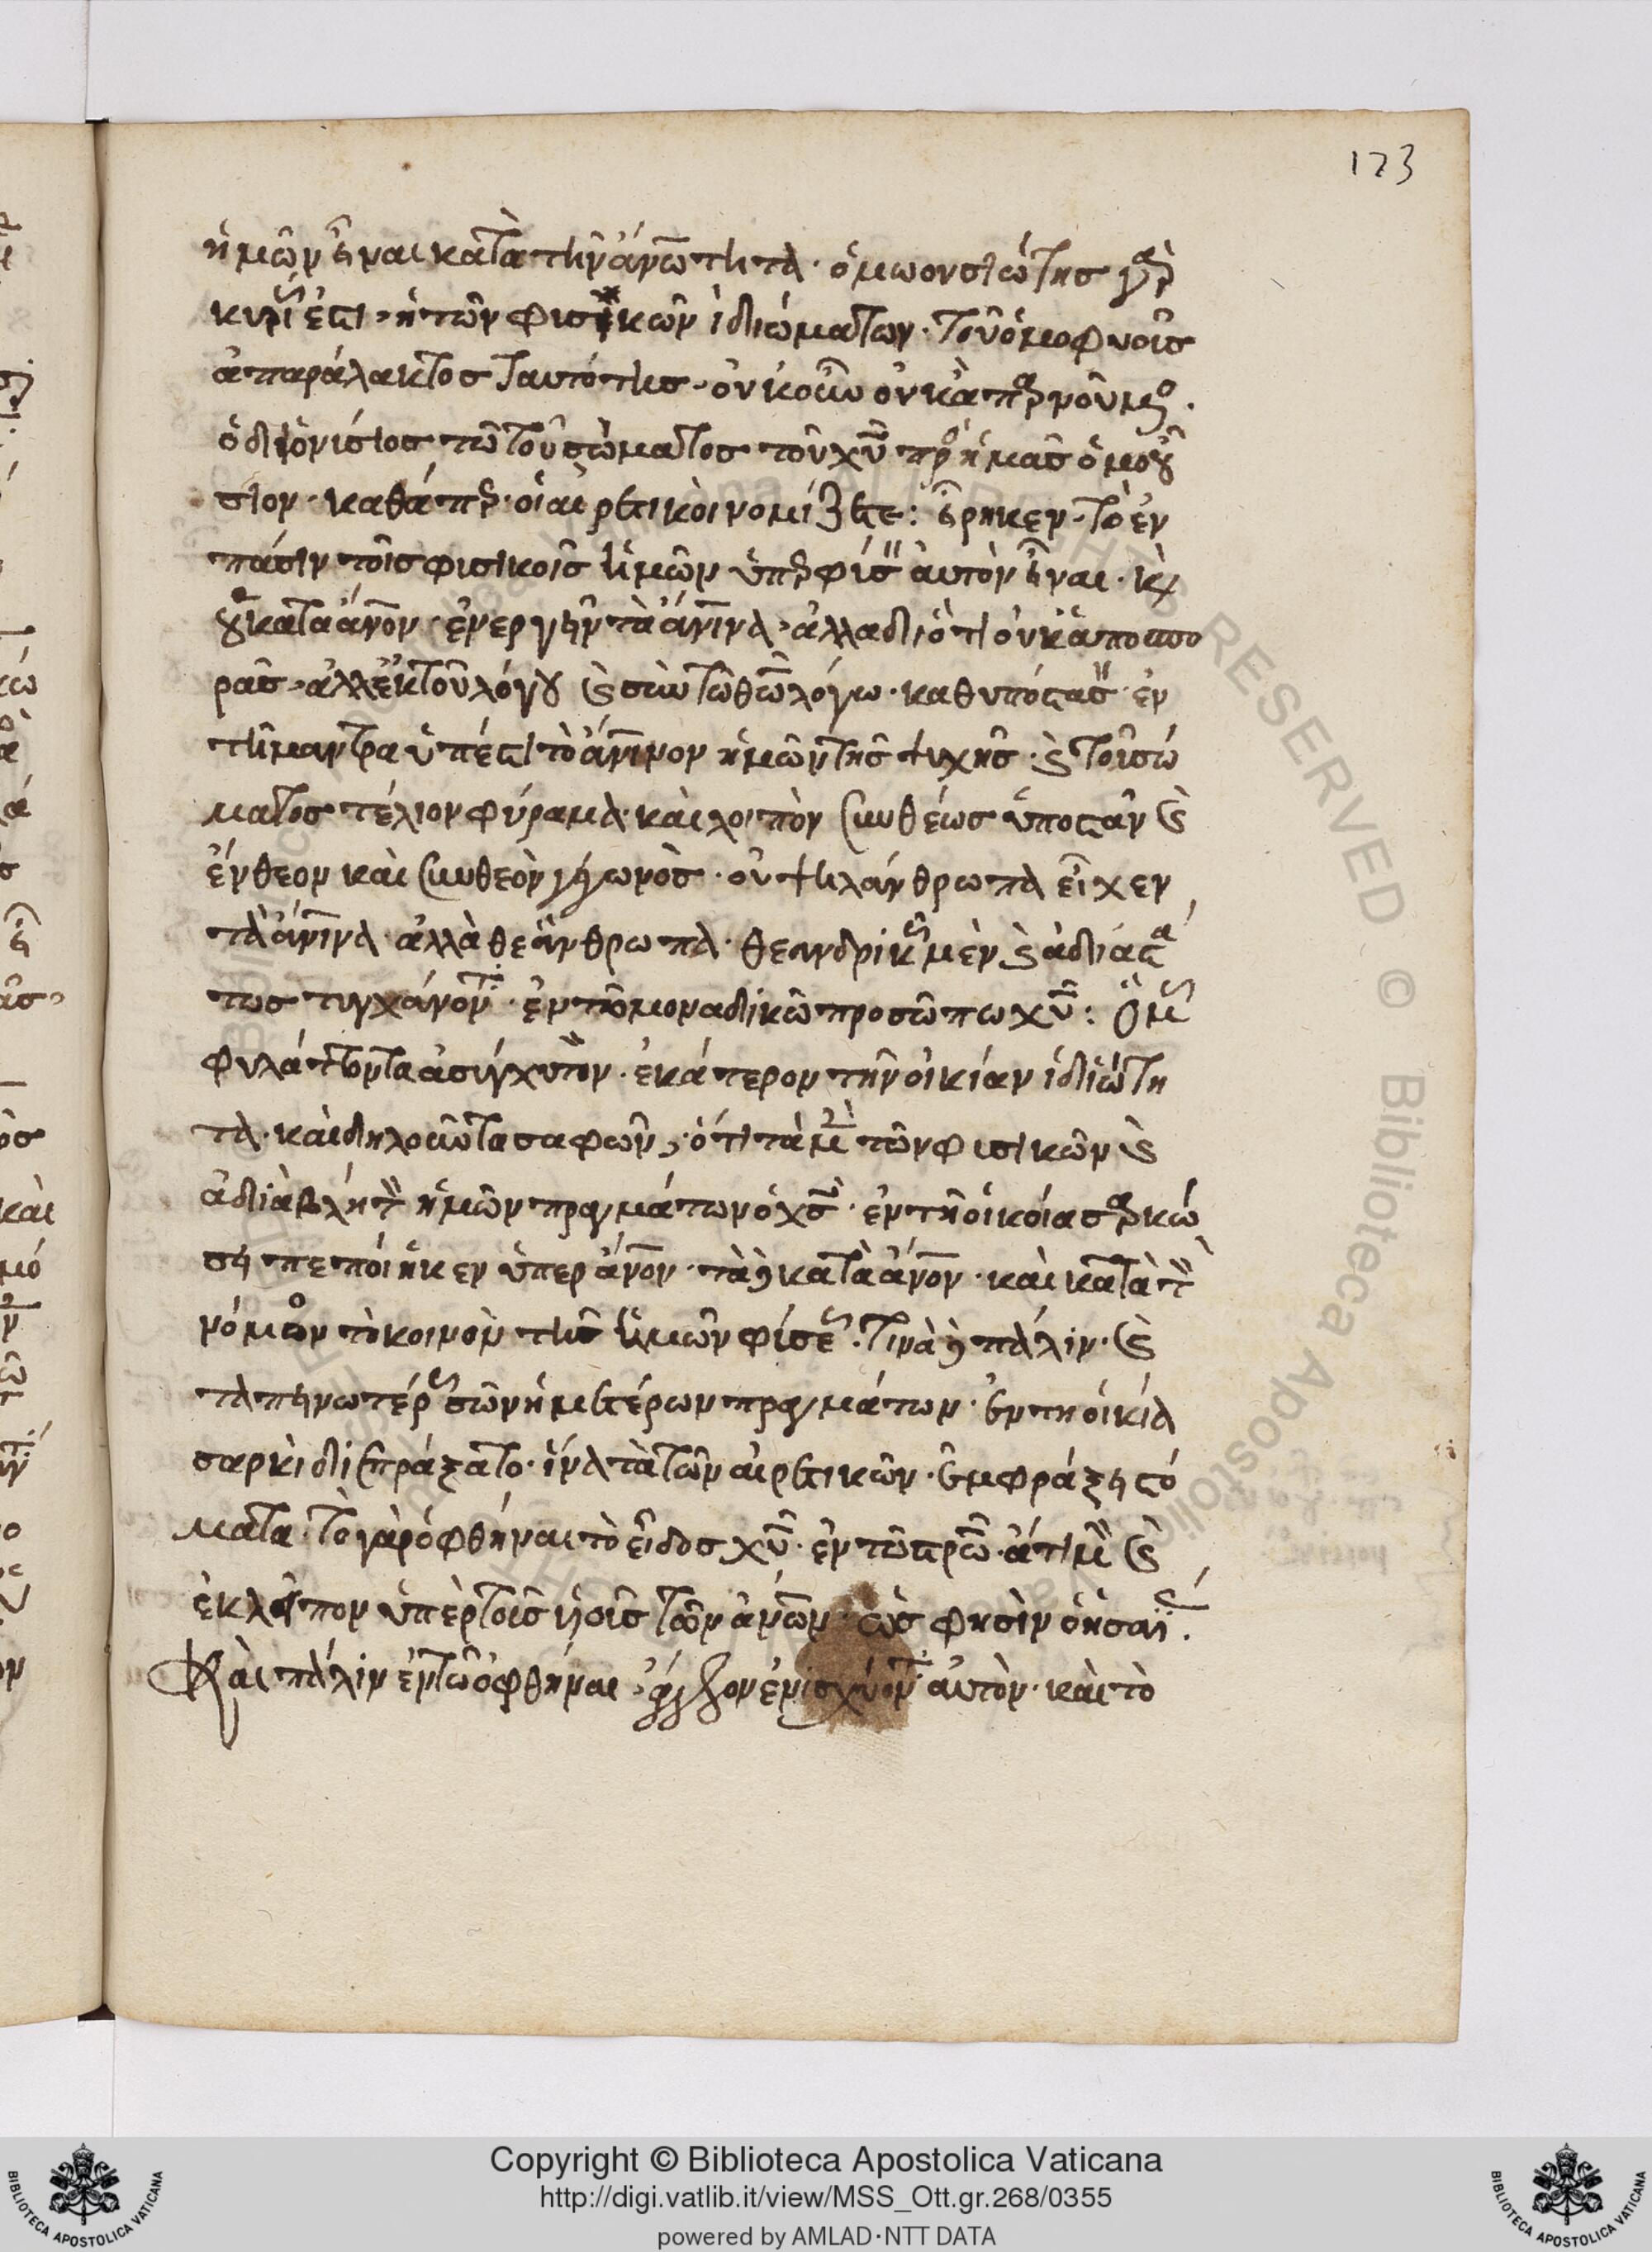 123
ἡμῶν εἶναι κατὰ τὴν ἀνω̅τητα · ὁμωουσιώτης γὰρ
κυρί ἐστι, ἡ τῶν φισικῶν ἰδιώματων · τοῦ ὁμοφυοῦς
ἀπαράλακτος ταυτότης · οὐκοῦν οὐκ ἀπαρνούμε ·
ὁ διονίσιος τῶ τοῦ σώματος τοῦ χῦ πρὸ ἡμᾶς ὁμοού
σιον · καθάπερ · οἱ αἱρετικοὶ νομίζετε : εἴρηκεν · τὸ ἐν
πάσιν τοῖς φισικοῖς ἡμῶν ὑπὲρ φίσ αὐτὸν εἶναι · κὲ
οὐ κατὰ ἄνον · ἐνεργεῖν τὰ ἀνινα · ἀλλὰ διότι οὐκ ἀπο σπο
ρᾶς · ἀλλ' ἐκ τοῦ λόγου καὶ σὺν τῶ θῶ λόγω · καθ υπόστασ · ἐν
τῆ μαντρα ὑπέστι τὸ ἄνινον ἡμῶν τῆς ψυχῆς · καὶ τοῦ σώ
ματος τέλιον φύραμα · καὶ λοιπὸν συνθέως ὑποστὰν καὶ
ἔνθεον καὶ συνθεὸν γεγωνὸς · οὐ ψηλάνθρωπα εἶχεν
τὰ ἄνινα · ἀλλὰ θεάνθρωπα · θεανδρικῶς μὲν καὶ ἀδιάστα
τως τυγχάνοντ · ἐν τῶ μοναδικῶ προσώπω χῦ : ὅμως
φυλάττοντα ἀσύγχυτον · ἑκάτερον τὴν οἰκίαν ἰδιώτη
τα · καὶ δηλοῦντα σαφῶν, ὅτι τὰ μὲν τῶν φισικῶν καὶ
ἀδιαβλήτ ἡμῶν πραγμάτων ὁ χσ · ἐν τῆ οἰκοία σαρκώ
σει πεποίηκεν ὑπερ ἄνον · τὰ δὲ κατὰ ἄνον · καὶ κατὰ τ
νόμον τὸ κοινὸν τῆς ἡμῶν φίσεως · τινὰ δὲ πάλιν · καὶ
ταπεινωτέρως τῶν ἡμετέρων πραγμάτων · ἐν τῆ οἰκία
σαρκὶ διεπράξατο · ἵνα τὰ τῶν αἱρετικῶν · ἐμφράξει στό
ματα · τὸ γὰρ ὀφθῆναι τὸ εἶδος χῦ · ἐν τῶ στρῶ · ἄτιμ καὶ
ἐκλεῖπον ὑπὲρ τοῖς υἱοῖς τῶν ἀνων · ὡς φησὶν ὁ ησαΐ ·
Καὶ πάλιν ἐν τῶ ὀφθῆναι, ἄγγελον ἐνισχύοντ αὐτὸν · καὶ τὸ
Copyright © Biblioteca Apostolica Vaticana
http://digi.vatlib.it/view/MSS_Ott.gr.268/0355
powered by AMLAD·NTT DATA